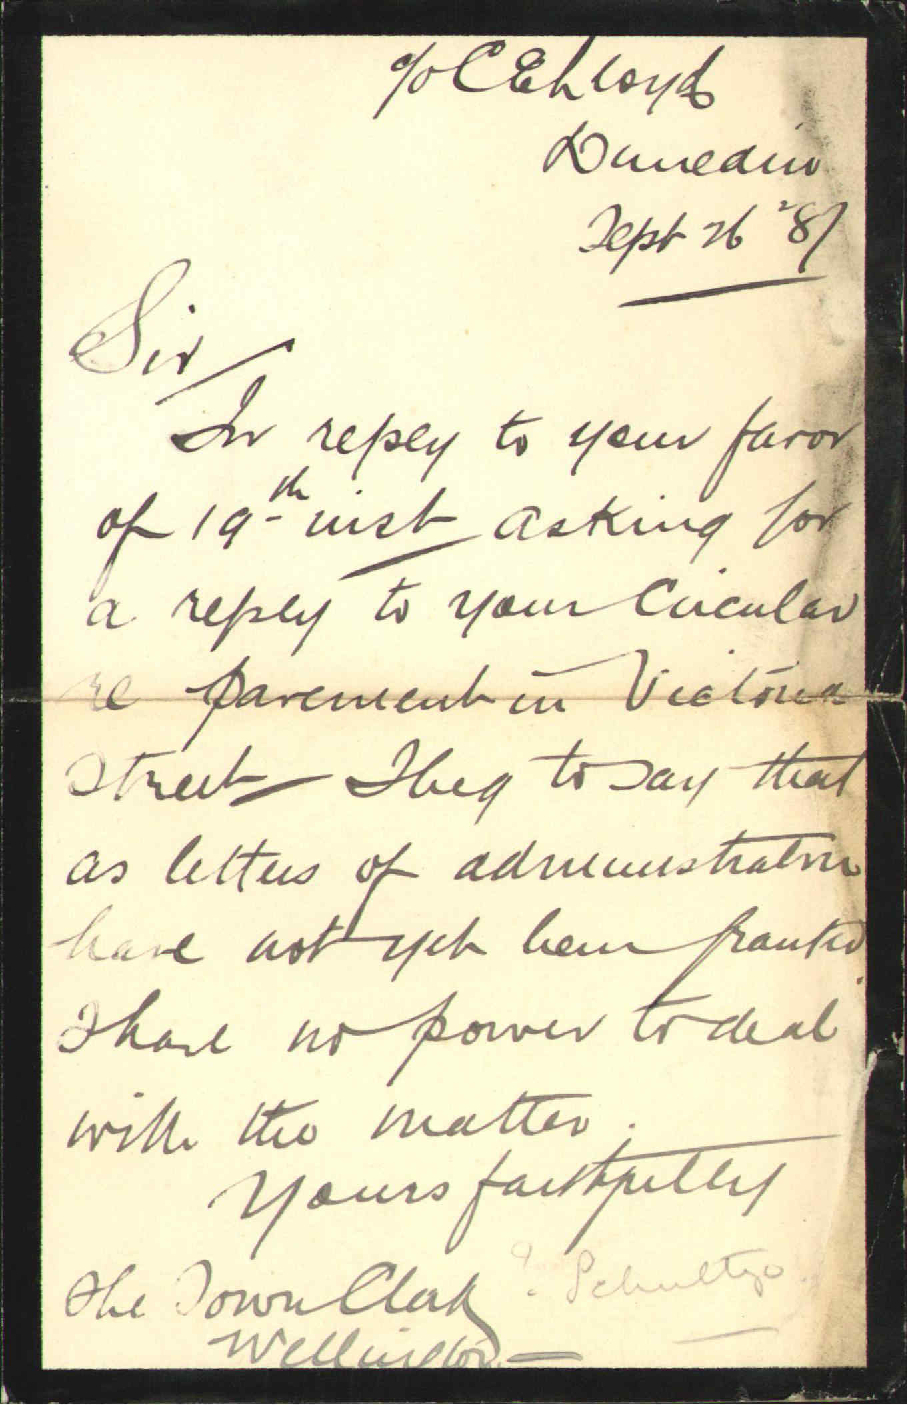 c/o C E Lloyd
Dunedin
Sept 26 '87
Sir
In reply to your favor
of 19th inst asking for
a reply to your Circular
re pavement in Victoria
Street I beg to say that
as letters of administration
have not yet been granted
I have no power to deal
with the matter.
Yours faithfully
Schultze
The Town Clerk
Wellington